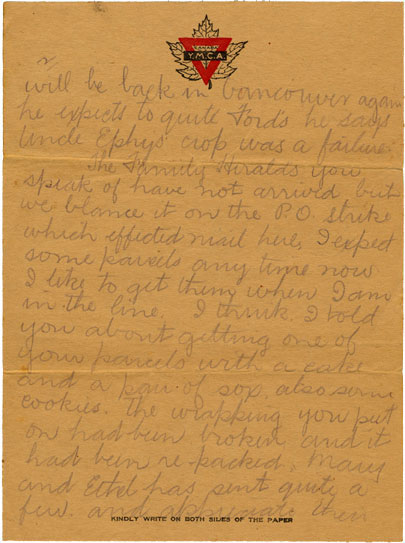 2
Y.M.C.A.
will be back in Vancouver again
he expects to quite Fords he says
Uncle Ephys' crop was a failure.
The Family Hiralds you
speak of have not arrived but
we blame it on the P.O. strike
which effected mail here, I expect
some parcels any time now
I like to get them when I am
in the line. I think I told
you about getting one of
your parcels with a cake
and a pair of sox, also some
cookies. The wrapping you put
on had been broken and it
had been re packed, Mary
and Ethel has sent quite a
few. and appreciate them
KINDLY WRITE ON BOTH SIDES OF THE PAPER